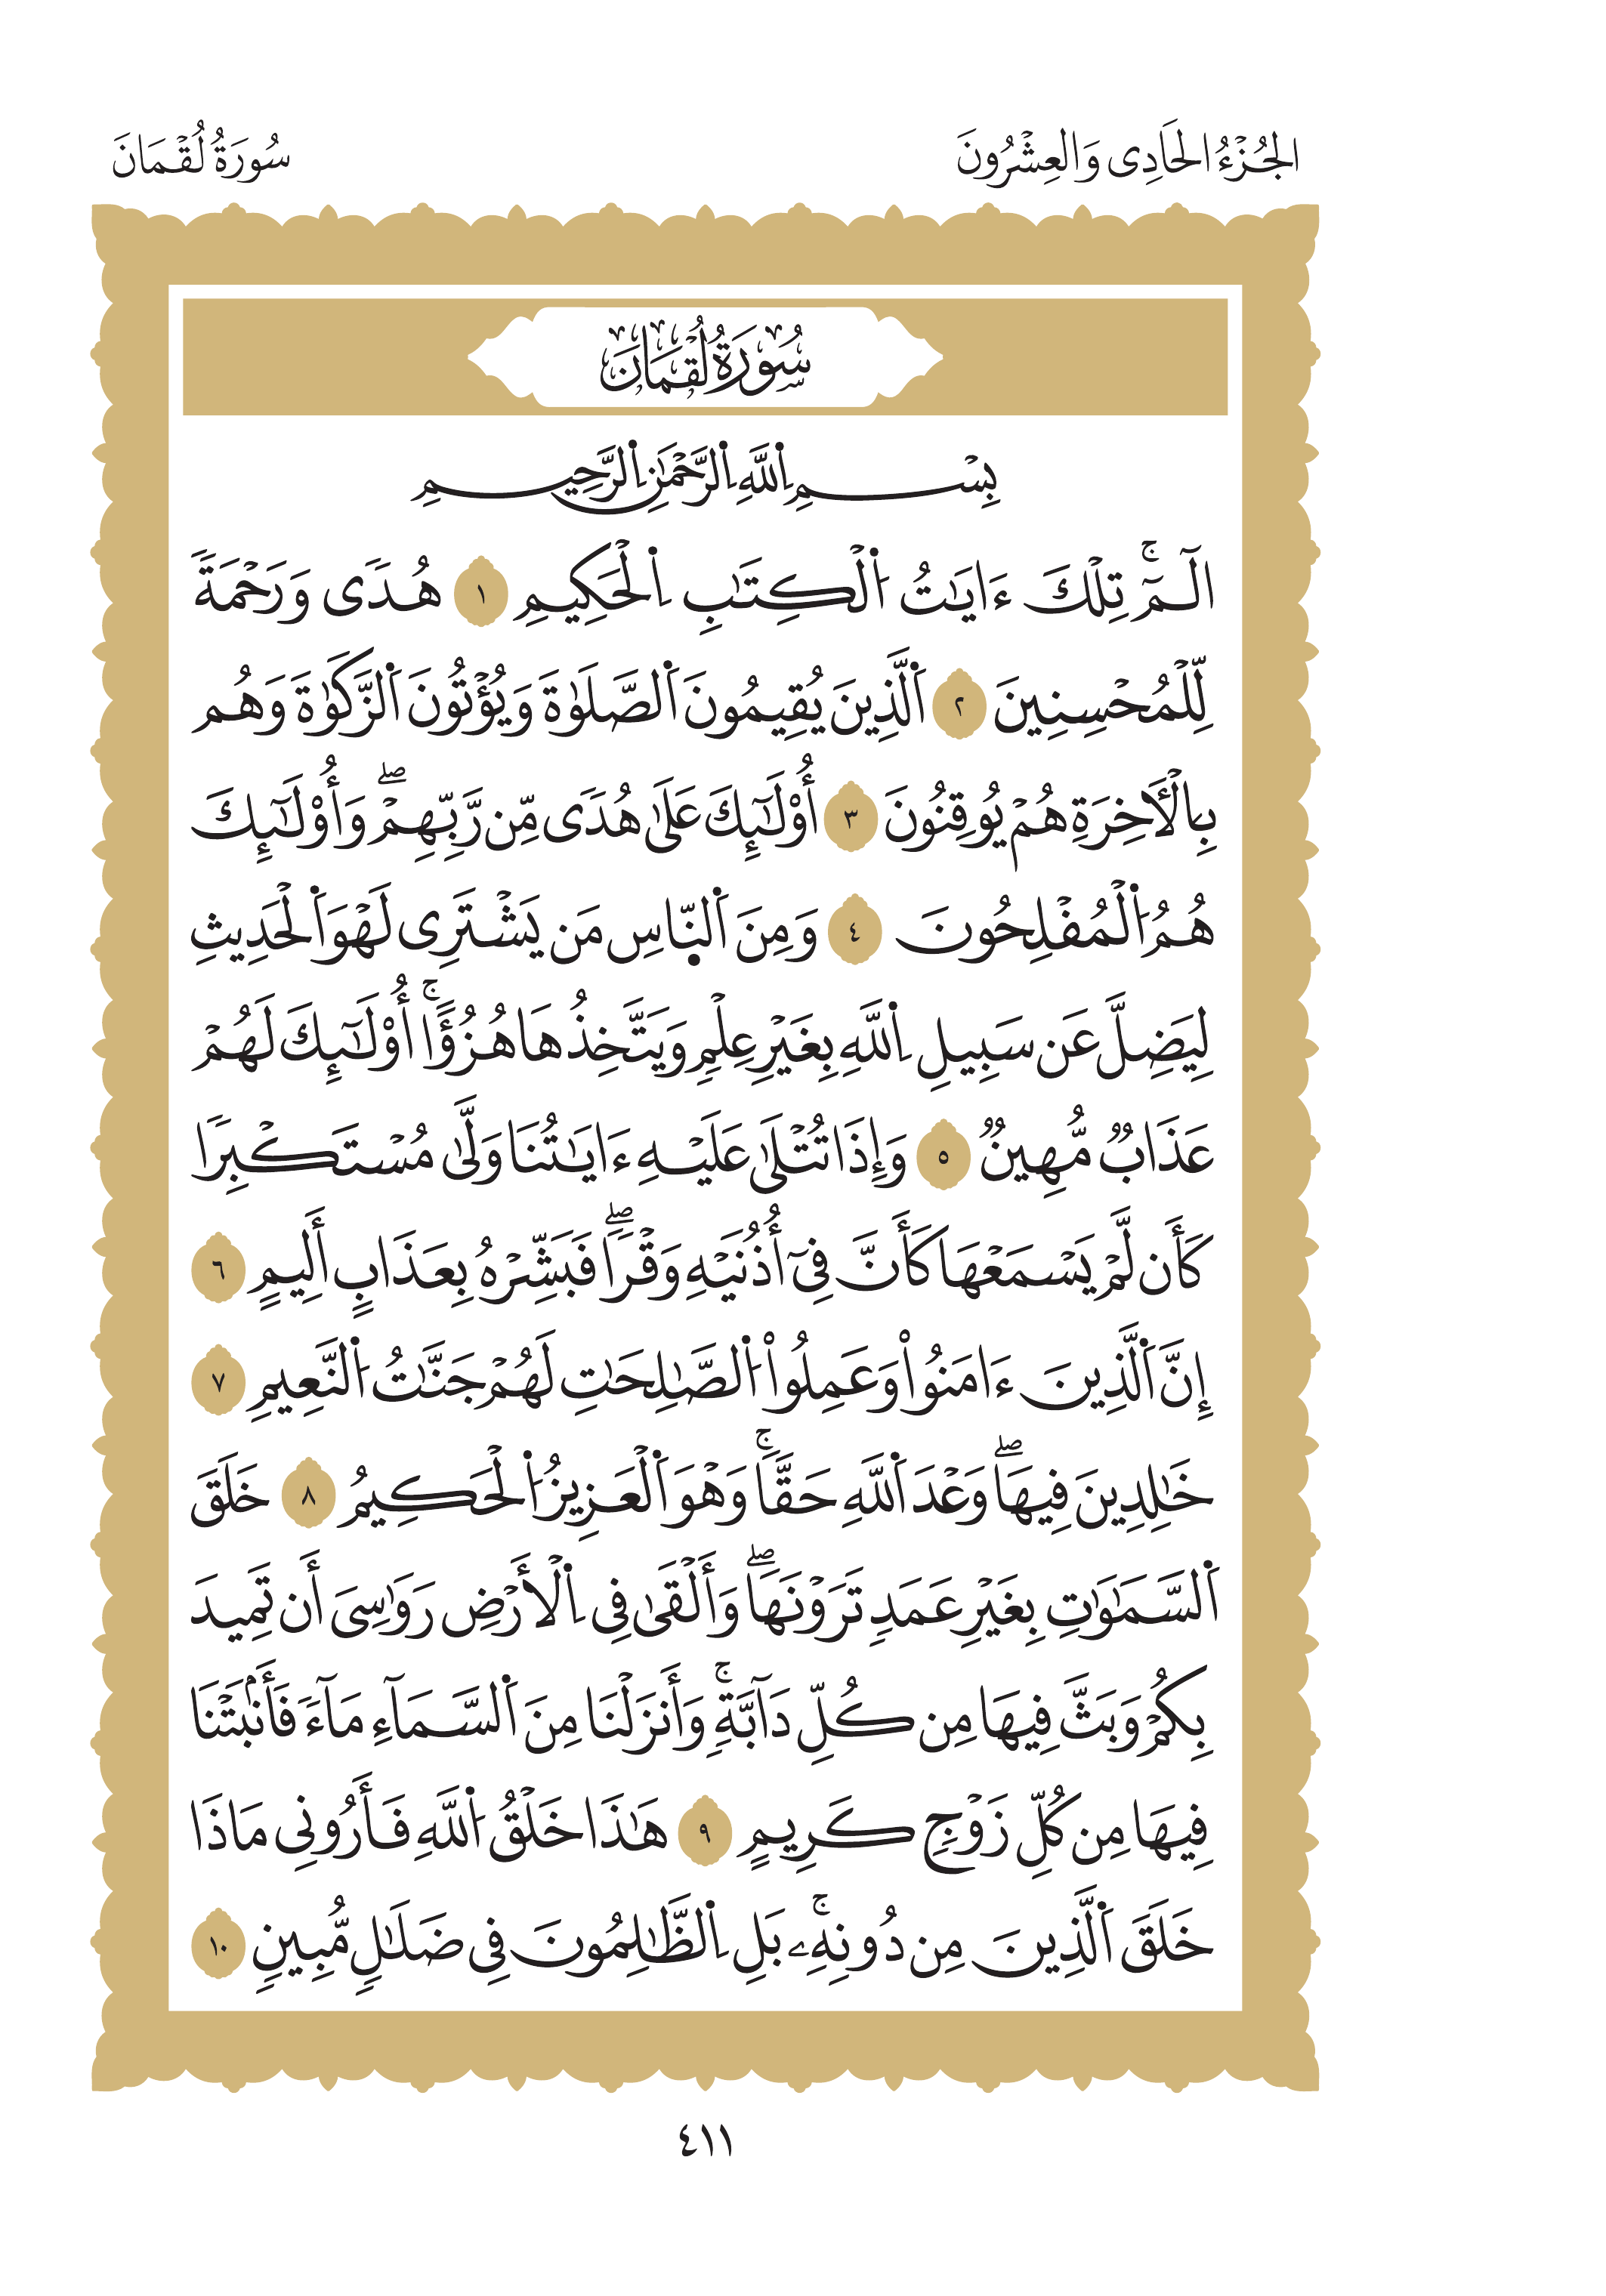 الجُزْءُ الحَادِى وَالعِشْرُونَ
سُورَةُ لُقْمَانَ
سُورَةُ لُقْمَانَ
بِسْمِ اِ۬للَّهِ اِ۬لرَّحْمَٰنِ اِ۬لرَّحِيمِ
الٓمٓۚ تِلْكَ ءَايَٰتُ اُ۬لْكِتَٰبِ اِ۬لْحَكِيمِ ١ هُدًى وَرَحْمَةً
لِّلْمُحْسِنِينَ ٢ اَ۬لَّذِينَ يُقِيمُونَ اَ۬لصَّلَوٰةَ وَيُؤْتُونَ اَ۬لزَّكَوٰةَ وَهُم
بِالْأَخِرَةِ هُمْ يُوقِنُونَ ٣ أُوْلَٰٓئِكَ عَلَىٰ هُدًى مِّن رَّبِّهِمْۖ وَأُوْلَٰٓئِكَ
هُمُ اُ۬لْمُفْلِحُونَ ٤ وَمِنَ اَ۬لنَّاسِ مَن يَشْتَرِى لَهْوَ اَ۬لْحَدِيثِ
لِيَضِلَّ عَن سَبِيلِ اِ۬للَّهِ بِغَيْرِ عِلْمٍ وَيَتَّخِذُهَا هُزُؤًاۚ أُوْلَٰٓئِكَ لَهُمْ
عَذَابٌ مُّهِينٌ ٥ وَإِذَا تُتْلَىٰ عَلَيْهِ ءَايَٰتُنَا وَلَّىٰ مُسْتَكْبِرًا
كَأَن لَّمْ يَسْمَعْهَا كَأَنَّ فِىٓ أُذُنَيْهِ وَقْرًاۖ فَبَشِّرْهُ بِعَذَابٍ أَلِيمٍ ٦
إِنَّ اَ۬لَّذِينَ ءَامَنُواْ وَعَمِلُواْ اُ۬لصَّٰلِحَٰتِ لَهُمْ جَنَّٰتُ اُ۬لنَّعِيمِ ٧
خَٰلِدِينَ فِيهَاۖ وَعْدَ اَ۬للَّهِ حَقًّاۚ وَهْوَ اَ۬لْعَزِيزُ اُ۬لْحَكِيمُ ٨ خَلَقَ
اَ۬لسَّمَٰوَٰتِ بِغَيْرِ عَمَدٍ تَرَوْنَهَاۖ وَأَلْقَىٰ فِى اِ۬لْأَرْضِ رَوَٰسِىَ أَن تَمِيدَ
بِكُمْ وَبَثَّ فِيهَا مِن كُلِّ دَآبَّةٍۚ وَأَنزَلْنَا مِنَ اَ۬لسَّمَآءِ مَآءً فَأَنۢبَتْنَا
فِيهَا مِن كُلِّ زَوْجٍ كَرِيمٍ ٩ هَٰذَا خَلْقُ اُ۬للَّهِ فَأَرُونِى مَاذَا
خَلَقَ اَ۬لَّذِينَ مِن دُونِهِۦۚ بَلِ اِ۬لظَّٰلِمُونَ فِى ضَلَٰلٍ مُّبِينٍ ١٠
٤١١